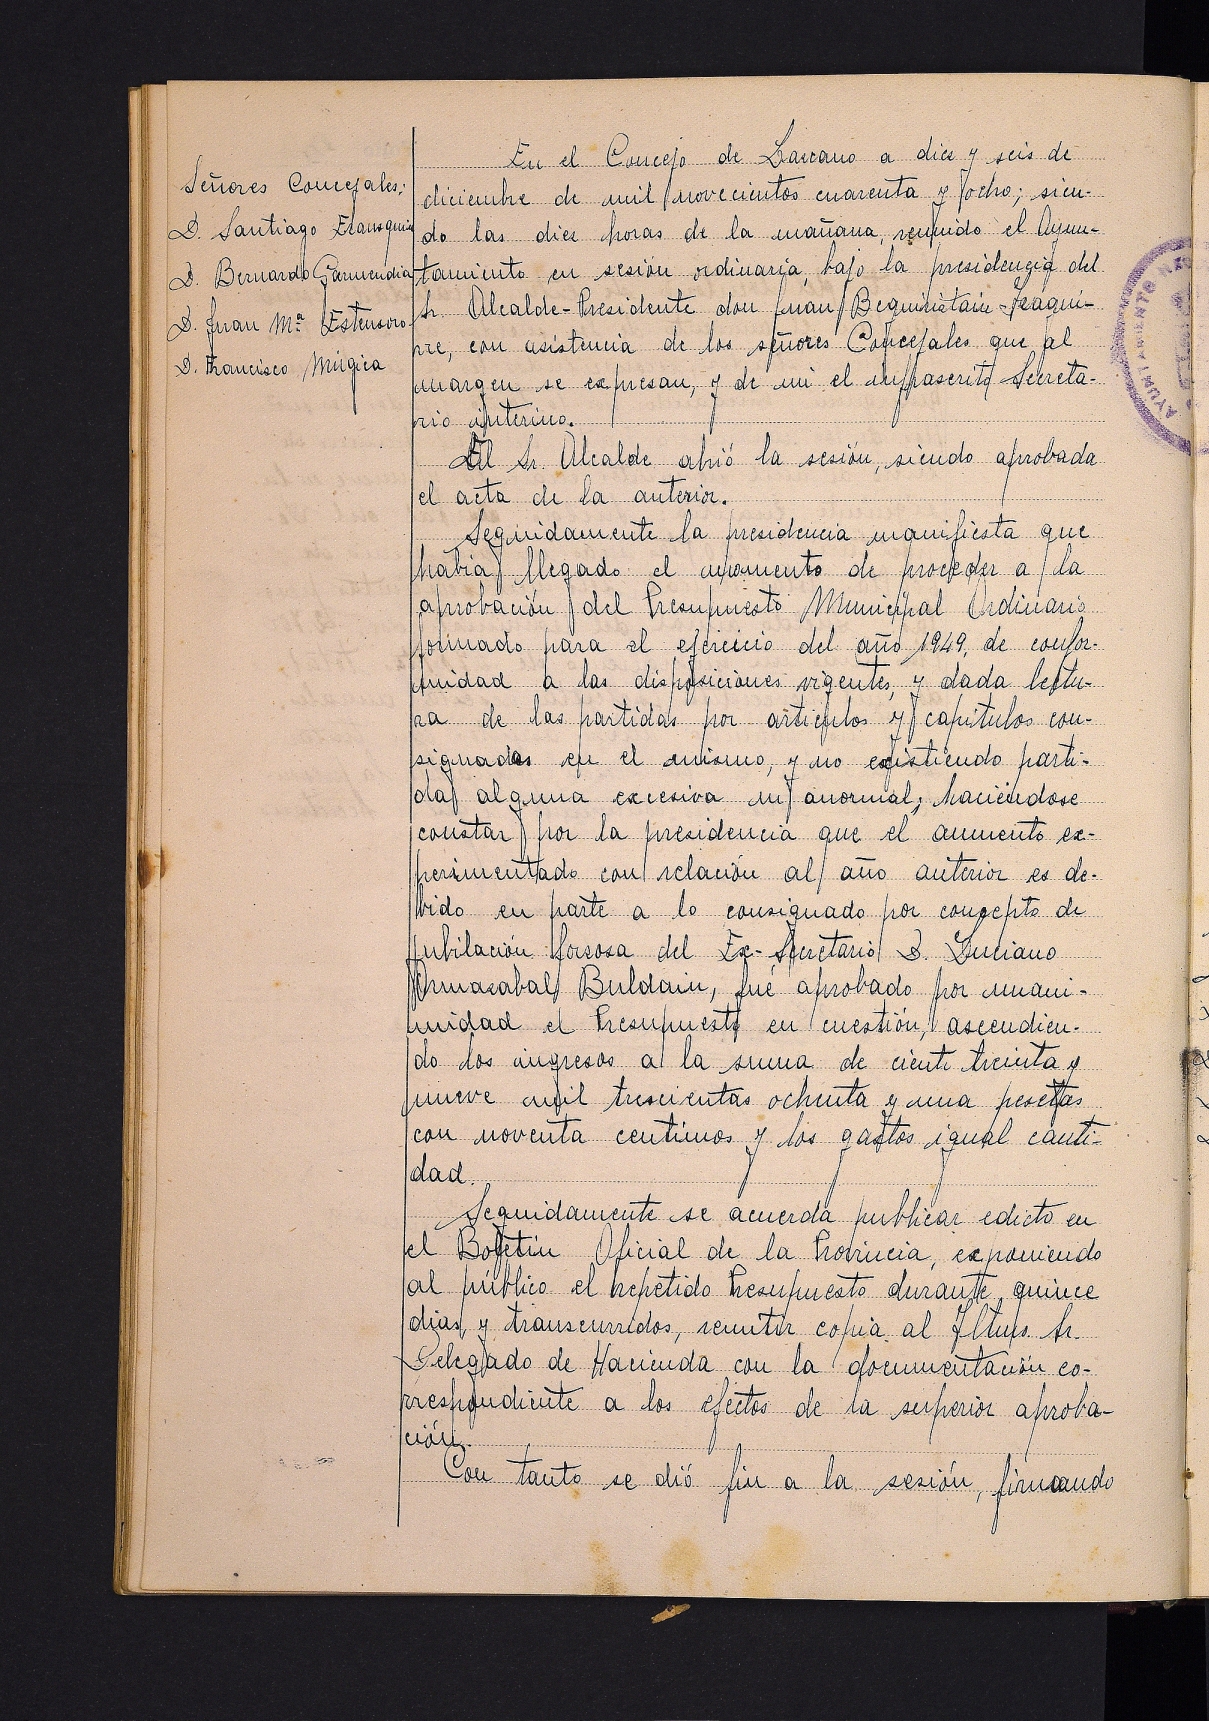 Señores Concejales:
D. Santiago Eransquin
D. Bernardo Garmendia
D. Juan Mª Estensoro
D. Francisco Múgica
En el Concejo de Lazcano a diez y seis de
diciembre de mil novecientos cuarenta y ocho; sien-
do las diez horas de la mañana, reunido el Ayun-
tamiento en sesión ordinaria, bajo la presidencia del
Sr. Alcalde-Presidente don Juan Beguiristain-Izagui-
rre, con asistencia de los señores Concejales que al
margen se expresan, y de mi el infrascrito Secreta-
rio interino.
El Sr. Alcalde abrió la sesión, siendo aprobada
el acta de la anterior.
Seguidamente la presidencia manifiesta que
había llegado el momento de proceder a la
aprobación del Presupuesto Municipal Ordinario
formado para el ejercicio del año 1949, de confor-
midad a las disposiciones vigentes, y dada lectu-
ra de las partidas por artículos y capítulos con-
signadas en el mismo, y no existiendo parti-
da alguna excesiva ni anormal; haciéndose
constar por la presidencia que el aumento ex-
perimentado con relación al año anterior es de-
bido en parte a lo consignado por concepto de
jubilación forzosa del Ex-Secretario D. Luciano
Ormazabal Buldain, fué aprobado por unani-
midad el Presupuesto en cuestión, ascendien-
do los ingresos a la suma de ciento treinta y
nueve mil trescientas ochenta y una pesetas
con noventa centimos y los gastos igual canti-
dad.
Seguidamente se acuerda publicar edicto en
el Boletín Oficial de la Provincia, exponiendo
al público el repetido Presupuesto durante quince
dias, y transcurridos, remitir copia al Iltmo. Sr.
Delegado de Hacienda con la documentación co-
rrespondiente a los efectos de la superior aproba-
ción.
Con tanto se dió fin a la sesión, firmando
AYUNTAMIENTO